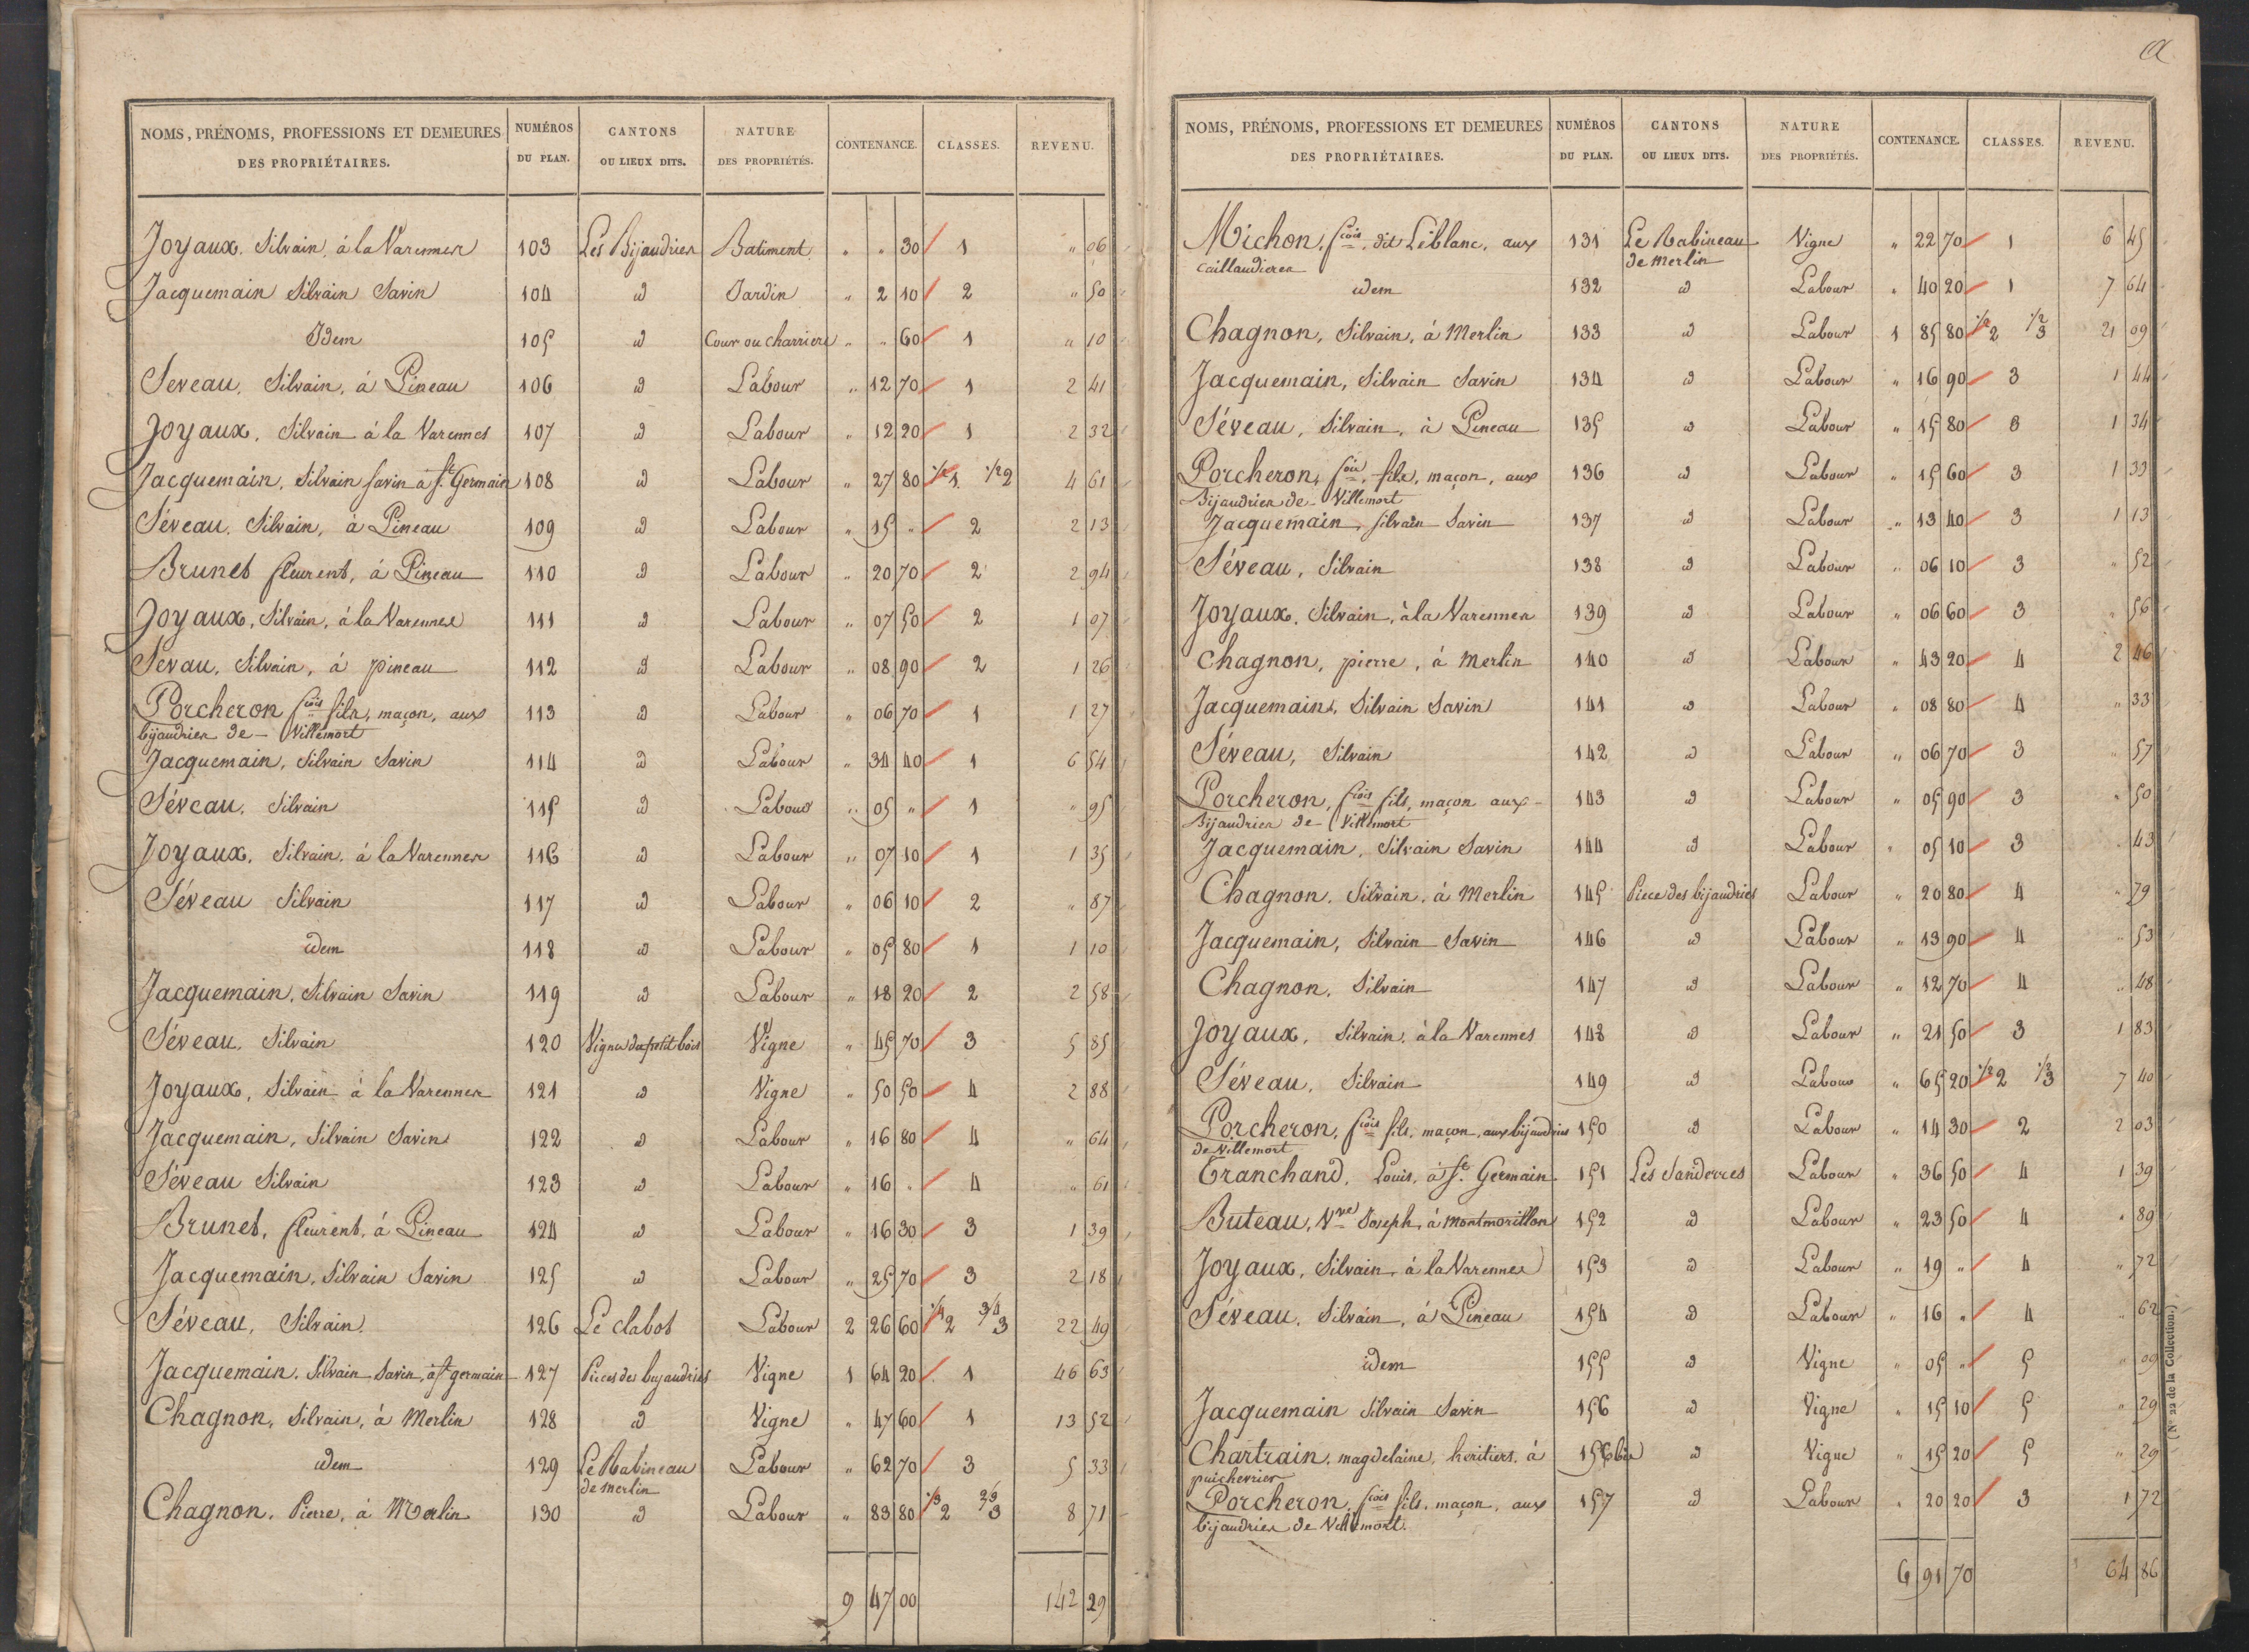 NOMS, PRÉNOMS, PROFESSIONS ET DEMEURES DES PROPRIÉTAIRES. NUMÉROS DU PLAN. CANTONS OU LIEUX DITS. NATURE DES PROPRIÉTÉS. CONTENANCE. CLASSES. REVENU.
Joyaux. Silvain, à la Varennes 103 Les Bijaudries Batiment " " 30 1 " 06
Jacquemain Silvain Savin 104 id Jardin " 2 10 2 " 50
Idem 105 id Cour ou charriere " " 60 1 " 10
Seveau, Silvain, à Pineau 106 id Labour " 12 70 1 2 41
Joyaux, Silvain à la Varennes 107 id Labour " 12 20 1 2 32
Jacquemain, Silvain Savin à St. Germain 108 id Labour " 27 80 1/2 1 1/2 2 4 61
Séveau. Silvain, à Pineau 109 id Labour " 15 " 2 2 13
Brunet fleurent, à Pineau 110 id Labour " 20 70 2 2 94
Joyaux, Silvain, à la Varennes 111 id Labour " 07 50 2 1 07
Sevau, Silvain, à pineau 112 id Labour " 08 90 2 1 26
Porcheron fcois fils, maçon, aux 113 id Labour " 06 70 1 1 27
bijaudries de Villemort
Jacquemain, Silvain Savin 114 id Labour " 34 40 1 6 54
Séveau, Silvain 115 id Labour " 05 " 1 " 95
Joyaux, Silvain, à la Varennes 116 id Labour " 07 10 1 1 35
Séveau Silvain 117 id Labour " 06 10 2 " 87
idem 118 id Labour " 05 80 1 1 10
Jacquemain, Silvain Savin 119 id Labour " 18 20 2 2 58
Séveau, Silvain 120 Vignes du petit bois Vigne " 45 70 3 5 85
Joyaux, Silvain à la Varennes 121 id Vigne " 50 50 4 2 88
Jacquemain, Silvain Savin 122 id Labour " 16 80 4 " 64
Séveau Silvain 123 id Labour " 16 " 4 " 61
Brunet, fleurent, à Pineau 124 id Labour " 16 30 3 1 39
Jacquemain, Silvain Savin 125 id Labour " 25 70 3 2 18
Séveau, Silvain. 126 Le clabot Labour 2 26 60 1/4 2 3/4 3 22 49
Jacquemain. Silvain Savin, à St germain 127 Pieces des bujaudries Vigne 1 64 20 1 46 63
Chagnon, Silvain, à Merlin 128 id Vigne " 47 60 1 13 52
idem 129 Le Rabineau Labour " 62 70 3 5 33
de merlin
Chagnon. Pierre, à Merlin 130 id Labour " 83 80 1/3 2 2/3 3 8 71
9 47 00 142 29
NOMS, PRÉNOMS, PROFESSIONS ET DEMEURES DES PROPRIÉTAIRES. NUMÉROS DU PLAN. CANTONS OU LIEUX DITS. NATURE DES PROPRIÉTÉS. CONTENANCE. CLASSES. REVENU.
Michon, fcois, dit Leblanc, aux 131 Le Rabineau Vigne " 22 70 1 6 45
caillaudieres de Merlin
idem 132 id Labour " 40 20 1 7 64
Chagnon, Silvain, à Merlin 133 id Labour 1 85 80 1/2 2 1/2 3 21 09
Jacquemain, Silvain Savin 134 id Labour " 16 90 3 1 44
Séveau, Silvain, à Pineau 135 id Labour " 15 80 3 1 34
Porcheron, fcois, fils, maçon, aux 136 id Labour " 15 60 3 1 33
Bijaudries de Villemort
Jacquemain, Silvain Savin 137 id Labour " 13 40 3 1 13
Séveau, Silvain 138 id Labour " 06 10 3 " 52
Joyaux, Silvain, à la Varennes 139 id Labour " 06 60 3 " 56
Chagnon, pierre, à Merlin 140 id Labour " 43 20 4 2 46
Jacquemain, Silvain Savin 141 id Labour " 08 80 4 " 33
Séveau, Silvain 142 id Labour " 06 70 3 " 57
Porcheron, fcois fils, maçon aux 143 id Labour " 05 90 3 " 50
Bijaudries de Villemort
Jacquemain, Silvain Savin 144 id Labour " 05 10 3 " 43
Chagnon. Silvain, à Merlin 145 Piece des bijaudries Labour " 20 80 4 " 79
Jacquemain, Silvain Savin 146 id Labour " 13 90 4 " 53
Chagnon, Silvain 147 id Labour " 12 70 4 " 48
Joyaux, Silvain, à la Varennes 148 id Labour " 21 50 3 1 83
Séveau, Silvain 149 id Labour " 65 20 1/2 2 1/2 3 7 40
Porcheron, fcois fils, maçon, aux bijaudries 150 id Labour " 14 30 2 2 03
de Villemort
Tranchand, Louis, à St. Germain 151 Les Sanderres Labour " 36 50 4 1 39
Buteau, Vve Joseph, à Montmorillon 152 id Labour " 23 50 4 " 89
Joyaux, Silvain, à la Varennes 153 id Labour " 19 " 4 " 72
Séveau, Silvain, à Pineau 154 id Labour " 16 " 4 " 62
idem 155 id Vigne " 05 " 5 " 09
Jacquemain Silvain Savin 156 id Vigne " 15 10 5 " 29
Chartrain, magdelaine, héritiers, à 156 bis id Vigne " 15 20 5 " 29
puichevrier
Porcheron, fcois fils, maçon, aux 157 id Labour " 20 20 3 1 72
bijaudries de Villemort.
6 91 70 64 86
(N° 22 de la Collection.)